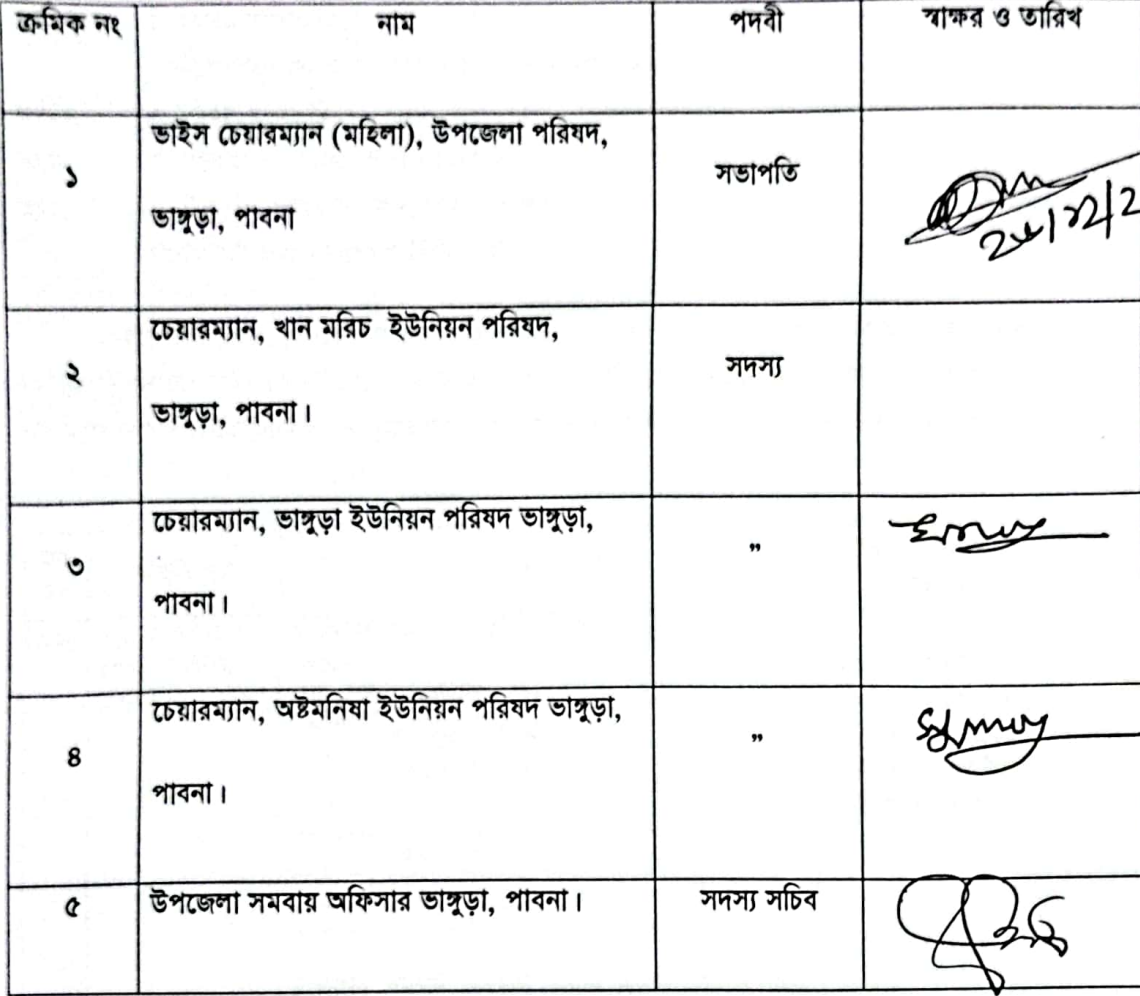 ক্রমিক নং নাম পদবী স্বাক্ষর ও তারিখ
ভাইস চেয়ারম্যান (মহিলা), উপজেলা পরিষদ,
১ সভাপতি
ভাঙ্গুড়া, পাবনা
চেয়ারম্যান, খান মরিচ ইউনিয়ন পরিষদ,
২ সদস্য
ভাঙ্গুড়া, পাবনা।
চেয়ারম্যান, ভাঙ্গুড়া ইউনিয়ন পরিষদ ভাঙ্গুড়া,
৩ "
পাবনা।
চেয়ারম্যান, অষ্টমনিষা ইউনিয়ন পরিষদ ভাঙ্গুড়া,
৪ "
পাবনা।
৫ উপজেলা সমবায় অফিসার ভাঙ্গুড়া, পাবনা। সদস্য সচিব